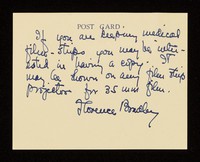 POST CARD
If you are keeping medical
film-strips you may be inter-
ested in having a copy. It
may be shown on any film strip
projector for 35 mm film.
Florence Bradley